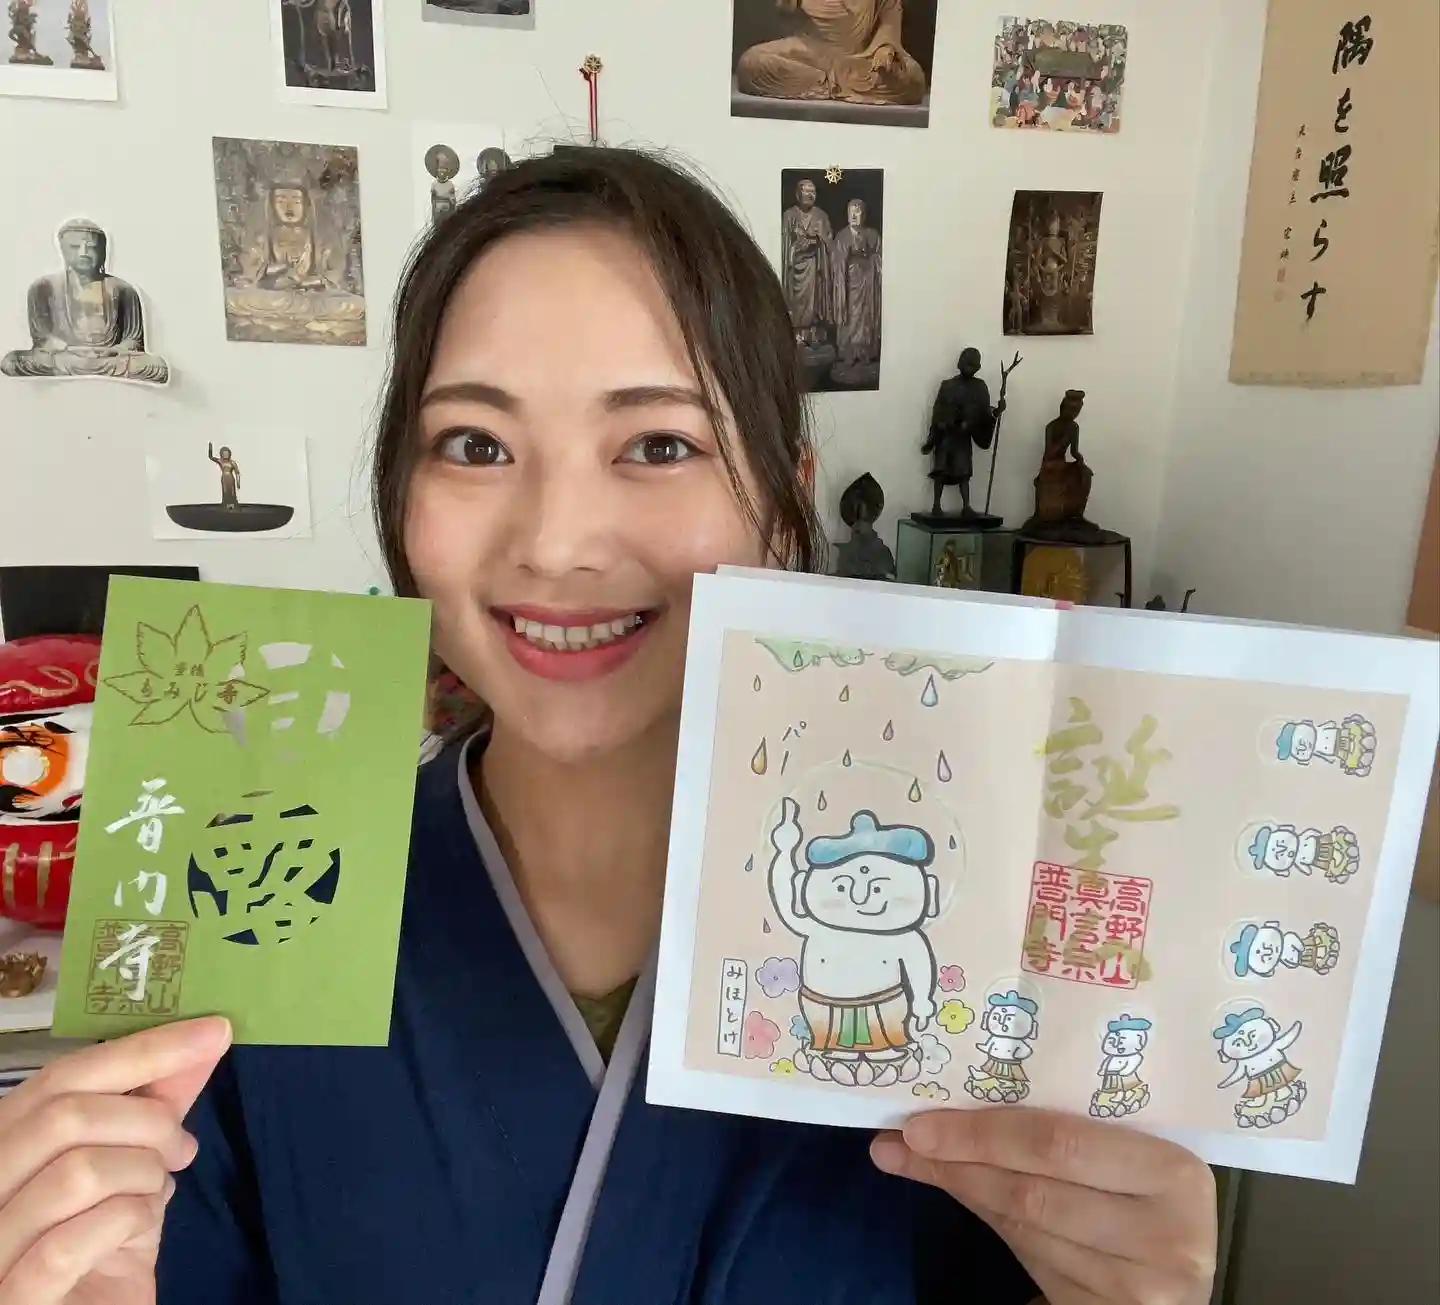 隅を照らす
天台座主
豊後
もみじ寺
甘露
普門寺
高野山
真言宗
普門寺
パー
誕生
高野山
真言宗
普門寺
みほとけ